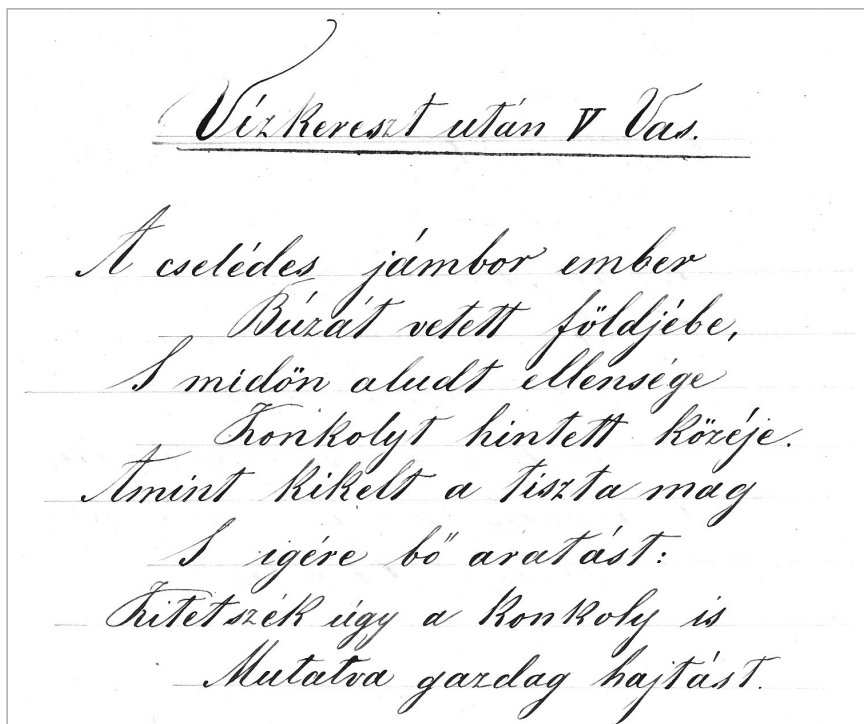 Vízkereszt után V Vas.
A cselédes jámbor ember
Búzát vetett földjébe,
S midőn aludt ellensége
Konkolyt hintett közéje.
Amint kikelt a tiszta mag
S igére bő aratást:
Kitetszék úgy a konkoly is
Mutatva gazdag hajtást.